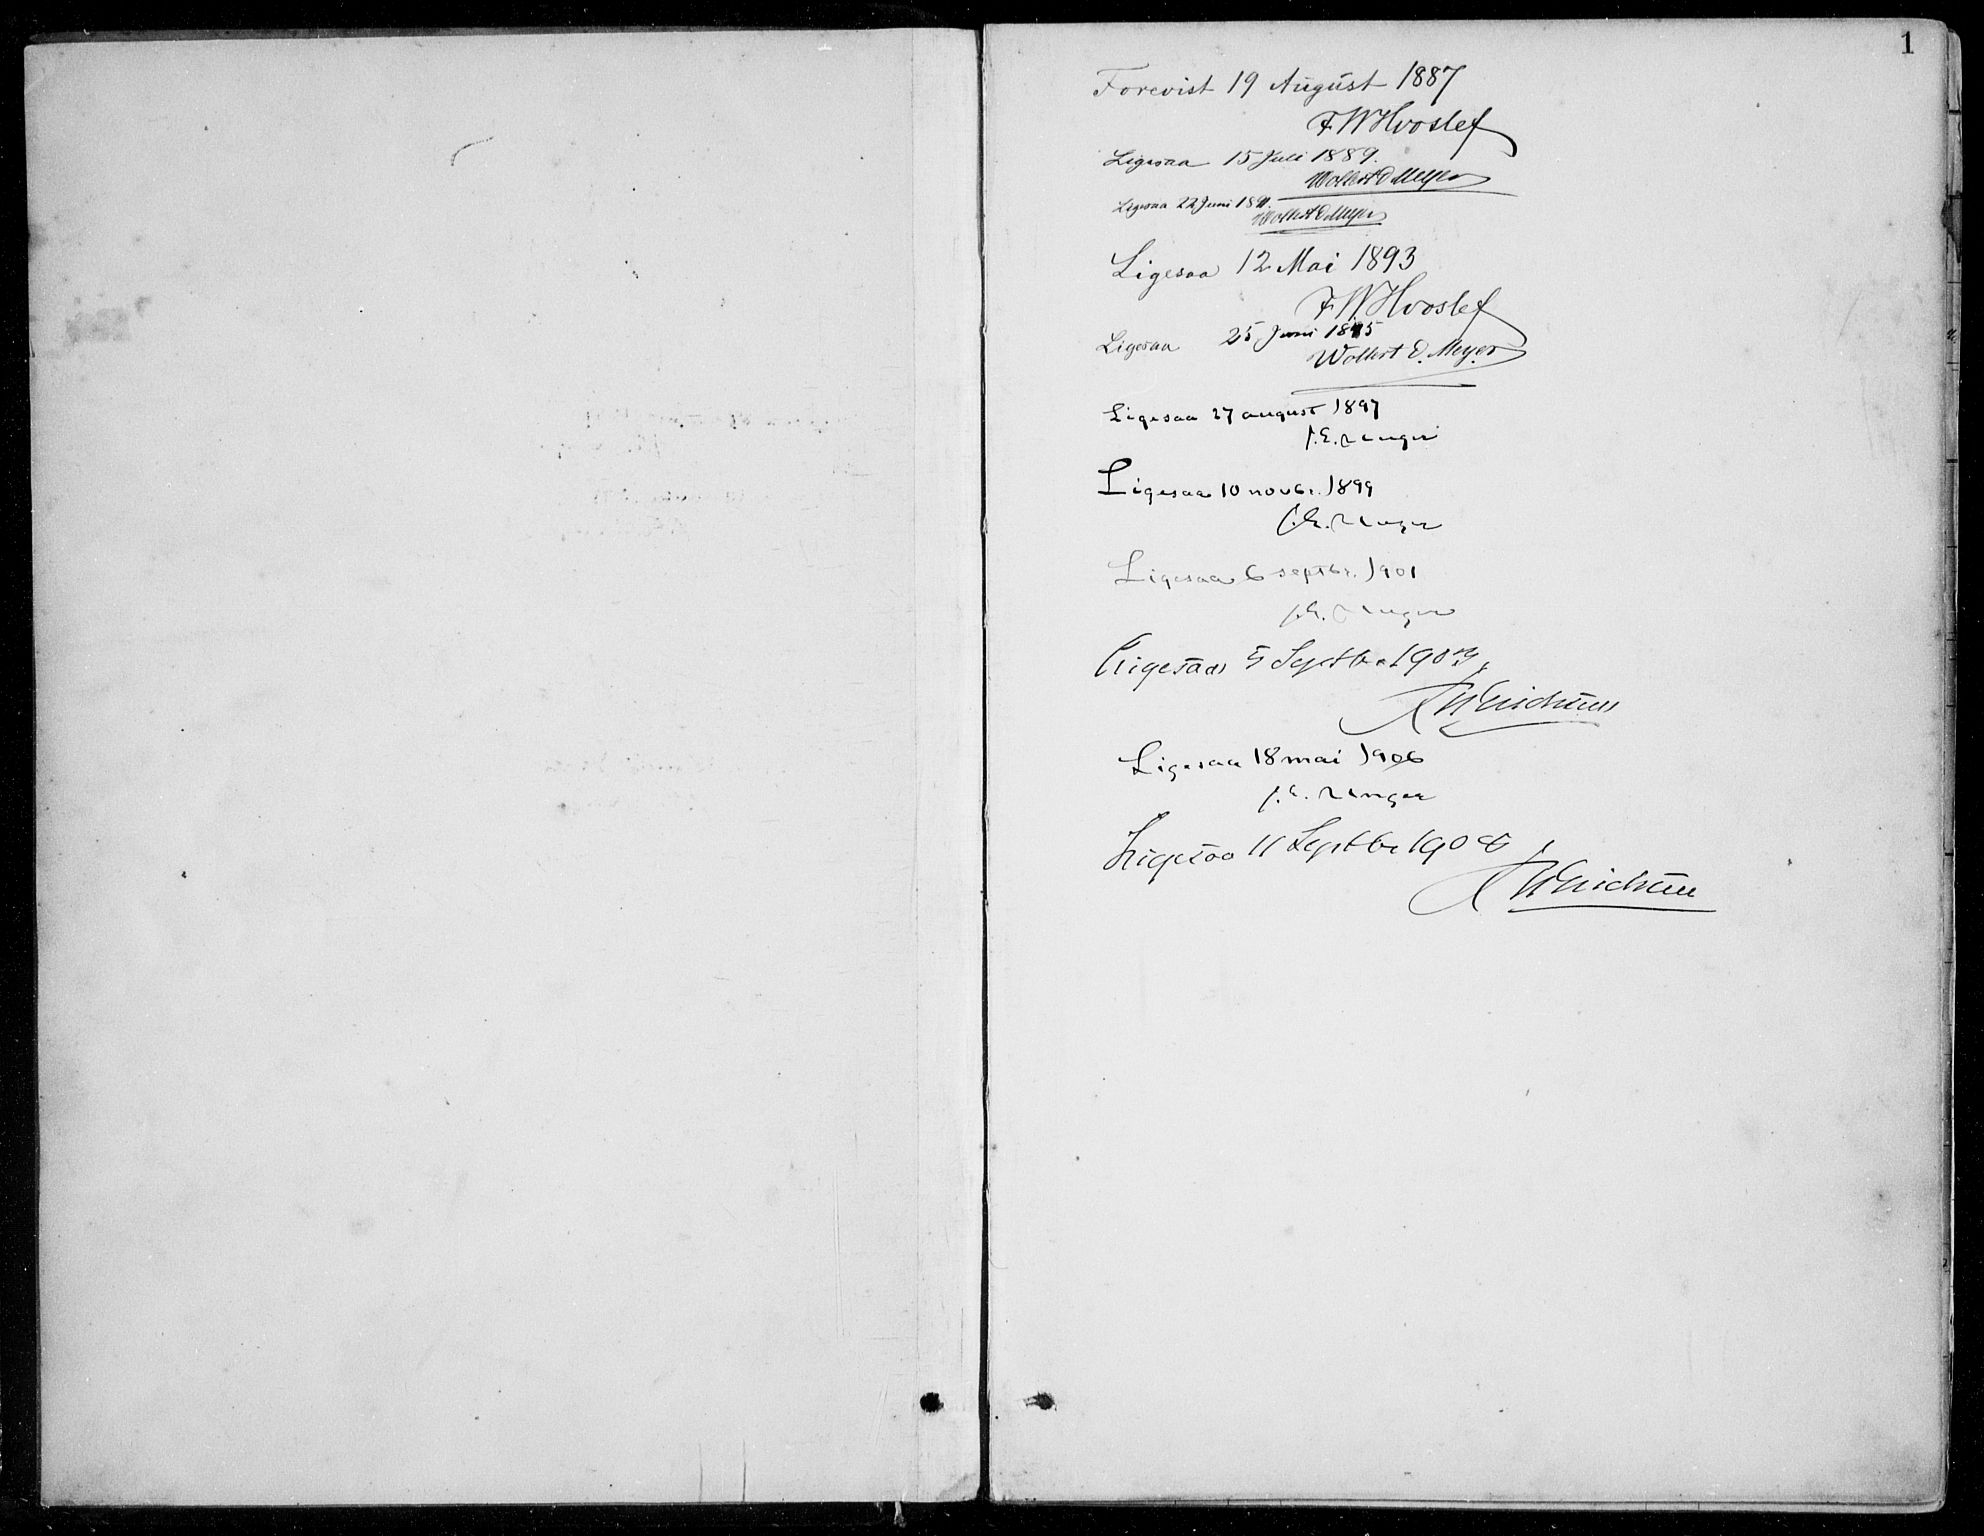 1
Forevist 19 August 1887
F W Hvoslef
Ligesaa 15 Juli 1889.
Wollert D Meyer
Ligesaa 22 Juni 1891.
Wollert D Meyer
Ligesaa 12 Mai 1893
F. W. Hvoslef
Ligesaa 25 Juni 1895
Wollert D. Meyer
Ligesaa 27 august 1897
J. E. Unger
Ligesaa 10 novbr. 1899
J. E. Unger
Ligesaa 6 septbr. 1901
J. E. Unger
Ligesaa 5 Septbr 1903,
Ligesaa 18 mai 1906
J. E. Unger
Ligesaa 11 Septbr 1908,